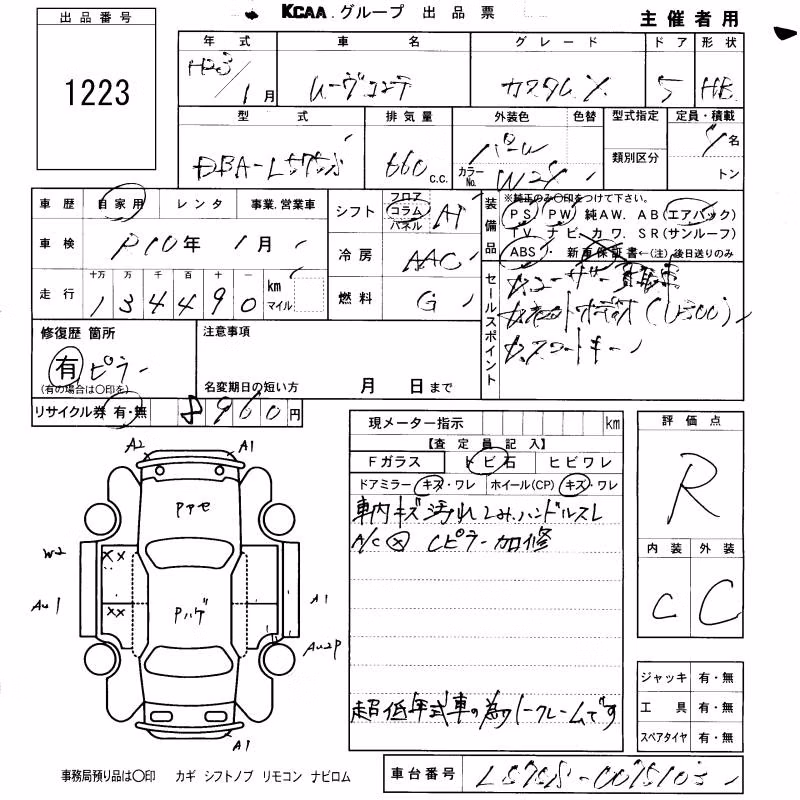 KCAA.グループ 出品票
主催者用
出品番号
1223
年式 車名 グレード ドア 形状
H23/1月 ムーヴコンテ カスタムX 5 HB
型式 排気量 外装色 色替 型式指定 定員・積載
DBA-L575S 660 c.c. パール カラーNo. W24 類別区分 4名
トン
車歴 自家用 レンタ 事業.営業車
シフト フロア コラム パネル AT
装備品
※純正のみ〇印をつけて下さい。
PS PW 純AW. AB(エアバック)
TV ナビ カワ. SR(サンルーフ)
ABS 新車保証書←(注)後日送りのみ
車検 R10年 1月
冷房 AAC
走行 十万 万 千 百 十 一 km マイル
134490
燃料 G
セールスポイント
ユーザー買取車
(U500)
修復歴 箇所
有 ピラー
(有の場合は〇印を)
注意事項
名変期日の短い方 月 日まで
リサイクル券 有・無 8960円
現メーター指示 km
【査定員記入】
Fガラス トビ石 ヒビワレ
ドアミラー キズ・ワレ ホイール(CP) キズ・ワレ
車内キズ汚れシミ.ハンドルスレ
A/C Cピラー加修
超低年式車の為ノークレームです
評価点
R
内装 外装
C C
A2 A1
Pアセ
W2 XX
XX
Au1
Pハゲ
A1
Au2P
A1
ジャッキ 有・無
工具 有・無
スペアタイヤ 有・無
事務局預り品は〇印 カギ シフトノブ リモコン ナビロム
車台番号 L575S-0075103